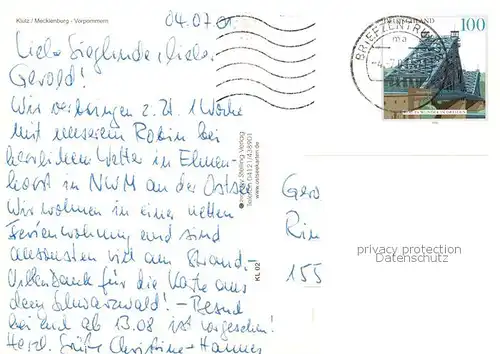 Klütz / Mecklenburg - Vorpommern
04.07.01.
Liebe Sieglinde, lieber
Gerold!
Wir verbringen z. Zt. 1 Woche
mit unserem Robin bei
herrlichem Wetter in Elmen-
horst in NWM an der Ostsee.
Wir wohnen in einer netten
Ferienwohnung und sind
ansonsten viel am Strand.
Vielen Dank für die Karte aus
dem Schwarzwald! - Besuch
bei euch ab 13.08 ist vorgesehen!
Herzl. Grüße Christine + Hannes
Verlag
www.ostseekarten.de
KL 02
BRIEFZENTRUM
DEUTSCHLAND
100
Gero
Rin
155
privacy protection
Datenschutz